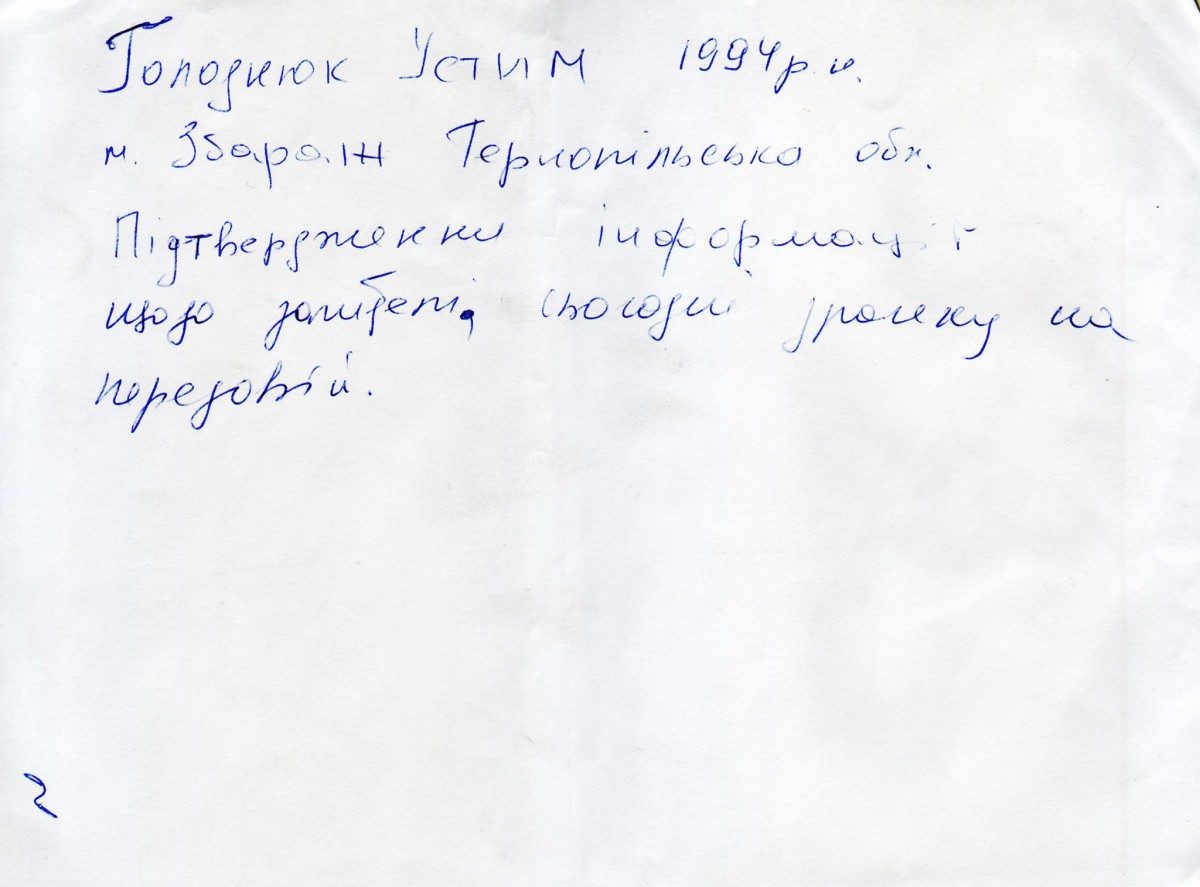 Голоднюк Устим 1994 р.н.
м. Збараж Тернопільська обл.
Підтвердження інформації
щодо загибелі, сьогодні зранку на
передовій.
2